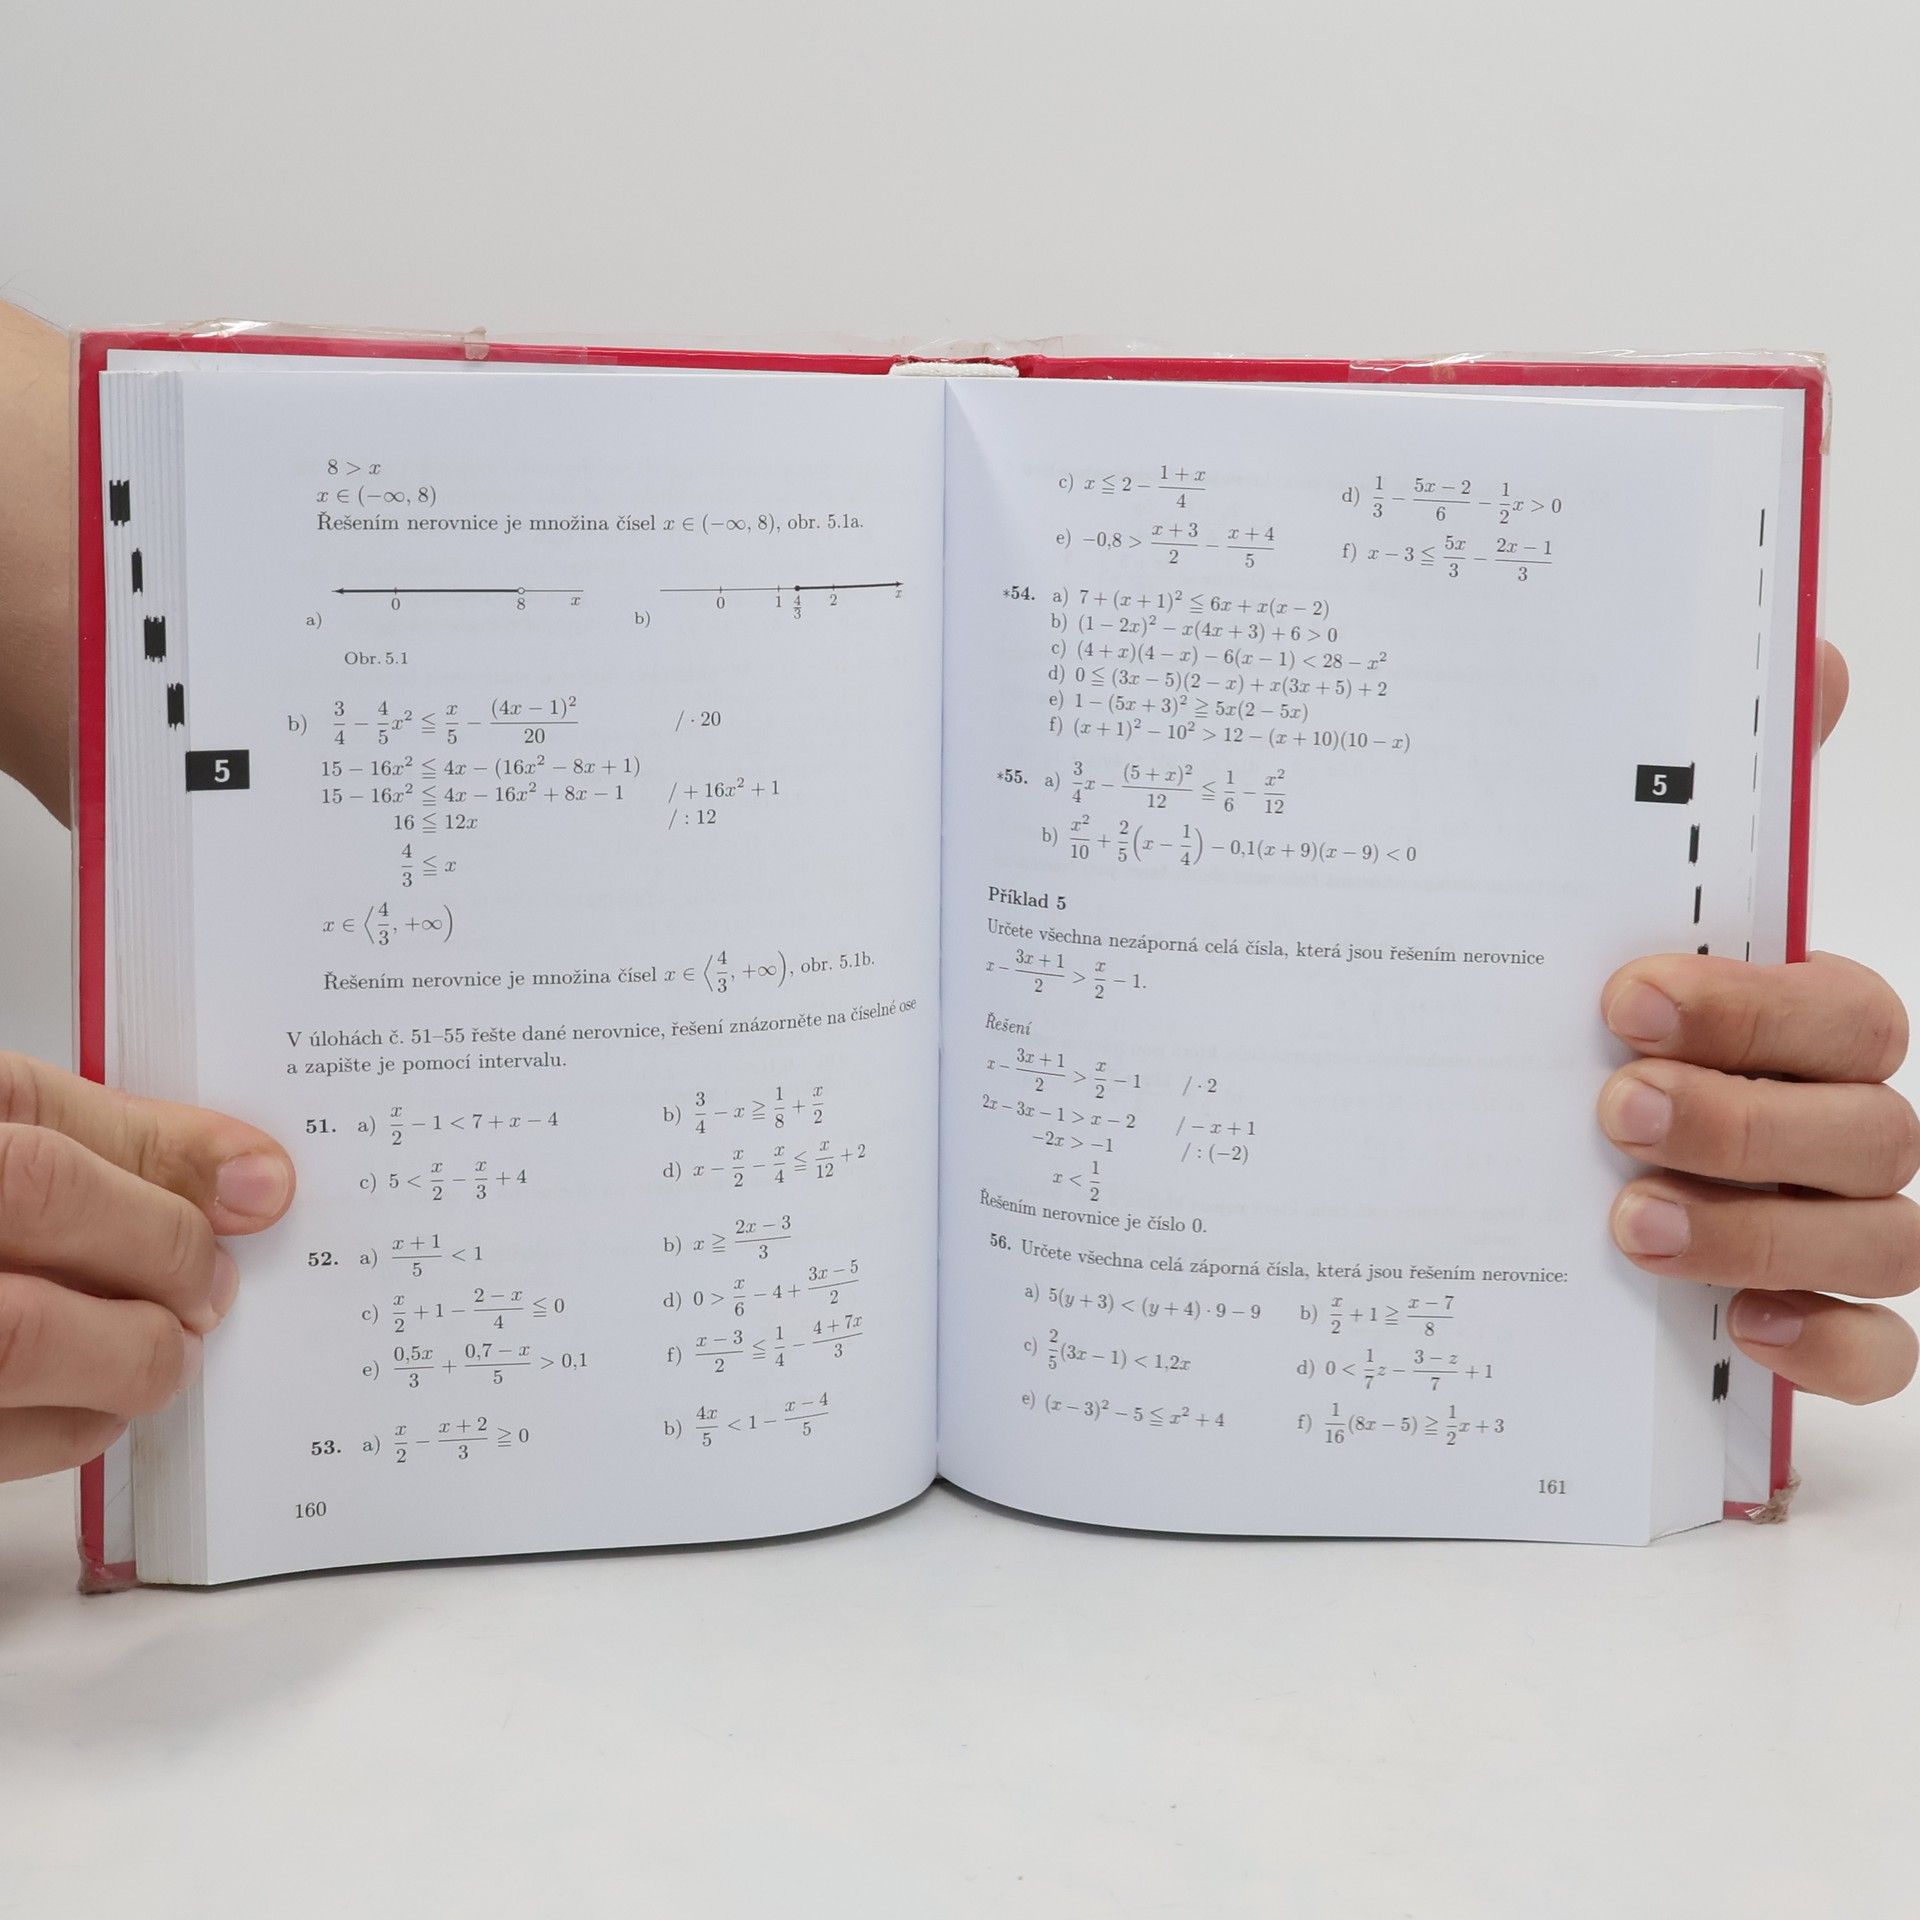 8 > x
x ∈ (−∞, 8)
Řešením nerovnice je množina čísel x ∈ (−∞, 8), obr. 5.1a.
a) 0 8 x
b) 0 1 4/3 2 x
Obr. 5.1
b) 3/4 − 4/5 x² ≦ x/5 − (4x − 1)²/20 / · 20
15 − 16x² ≦ 4x − (16x² − 8x + 1)
15 − 16x² ≦ 4x − 16x² + 8x − 1 / + 16x² + 1
16 ≦ 12x / : 12
4/3 ≦ x
x ∈ ⟨4/3, +∞)
Řešením nerovnice je množina čísel x ∈ ⟨4/3, +∞), obr. 5.1b.
5
V úlohách č. 51–55 řešte dané nerovnice, řešení znázorněte na číselné ose
a zapište je pomocí intervalu.
51. a) x/2 − 1 < 7 + x − 4 b) 3/4 − x ≧ 1/8 + x/2
c) 5 < x/2 − x/3 + 4 d) x − x/2 − x/4 ≦ x/12 + 2
52. a) (x + 1)/5 < 1 b) x ≧ (2x − 3)/3
c) x/2 + 1 − (2 − x)/4 ≦ 0 d) 0 > x/6 − 4 + (3x − 5)/2
e) 0,5x/3 + (0,7 − x)/5 > 0,1 f) (x − 3)/2 ≦ 1/4 − (4 + 7x)/3
53. a) x/2 − (x + 2)/3 ≧ 0 b) 4x/5 < 1 − (x − 4)/5
160
c) x ≦ 2 − (1 + x)/4 d) 1/3 − (5x − 2)/6 − 1/2 x > 0
e) −0,8 > (x + 3)/2 − (x + 4)/5 f) x − 3 ≦ 5x/3 − (2x − 1)/3
*54. a) 7 + (x + 1)² ≦ 6x + x(x − 2)
b) (1 − 2x)² − x(4x + 3) + 6 > 0
c) (4 + x)(4 − x) − 6(x − 1) < 28 − x²
d) 0 ≦ (3x − 5)(2 − x) + x(3x + 5) + 2
e) 1 − (5x + 3)² ≧ 5x(2 − 5x)
f) (x + 1)² − 10² > 12 − (x + 10)(10 − x)
*55. a) 3/4 x − (5 + x)²/12 ≦ 1/6 − x²/12
b) x²/10 + 2/5 (x − 1/4) − 0,1(x + 9)(x − 9) < 0
5
Příklad 5
Určete všechna nezáporná celá čísla, která jsou řešením nerovnice
x − (3x + 1)/2 > x/2 − 1.
Řešení
x − (3x + 1)/2 > x/2 − 1 / · 2
2x − 3x − 1 > x − 2 / − x + 1
−2x > −1 / : (−2)
x < 1/2
Řešením nerovnice je číslo 0.
56. Určete všechna celá záporná čísla, která jsou řešením nerovnice:
a) 5(y + 3) < (y + 4) · 9 − 9 b) x/2 + 1 ≧ (x − 7)/8
c) 2/5 (3x − 1) < 1,2x d) 0 < 1/7 z − (3 − z)/7 + 1
e) (x − 3)² − 5 ≦ x² + 4 f) 1/16 (8x − 5) ≧ 1/2 x + 3
161